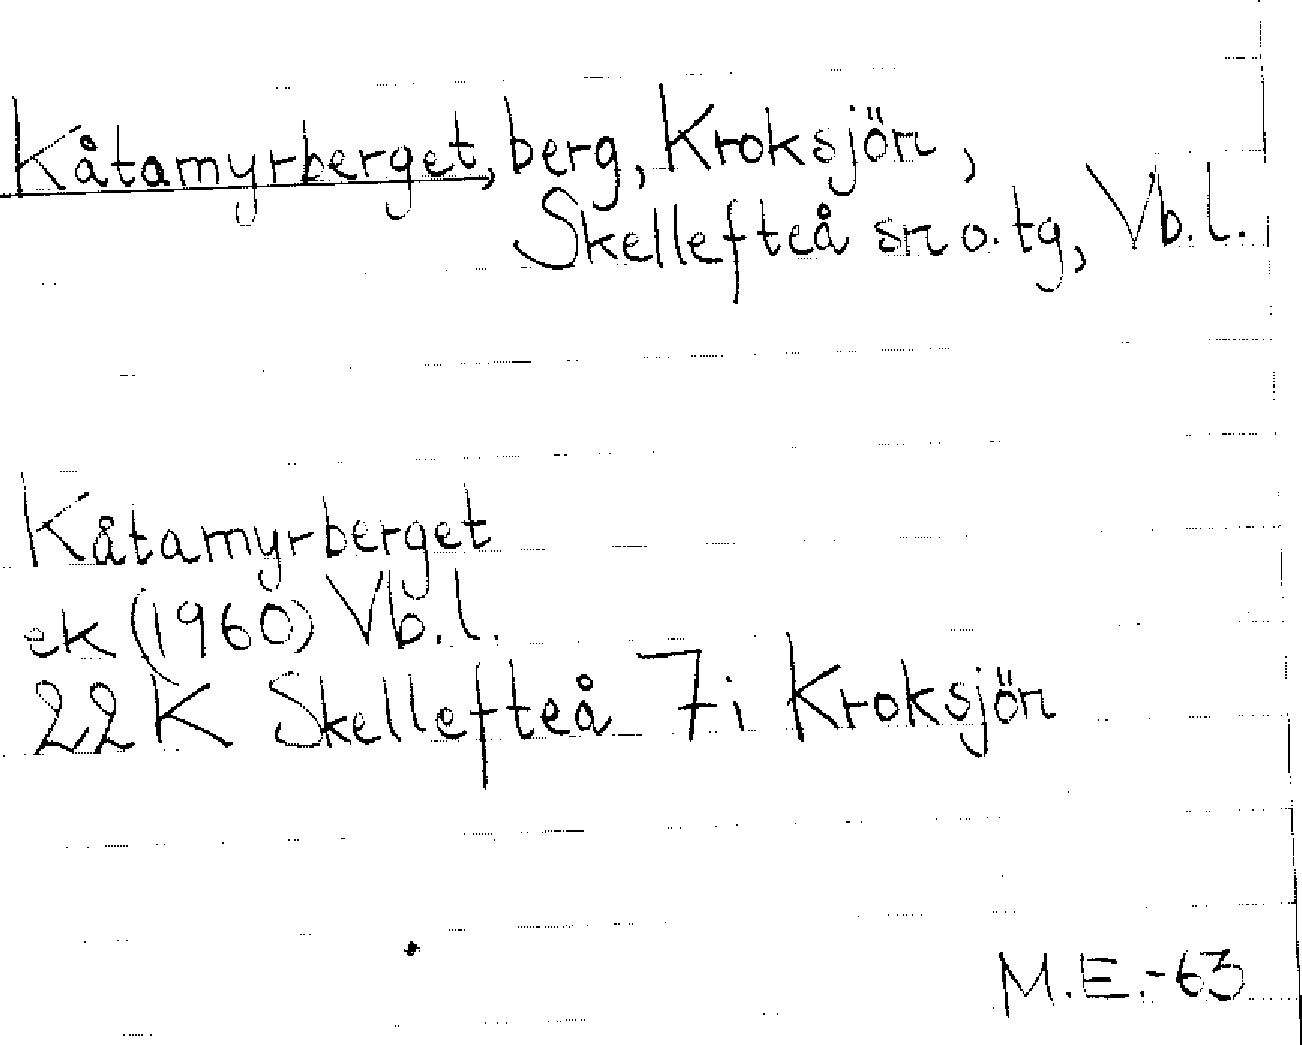 Kåtamyrberget, berg, Kroksjön,
Skellefteå sn o. tg, Vb. l.
Kåtamyrberget
ek (1960) Vb. l.
22 K Skellefteå 7i Kroksjön
M.E.-63